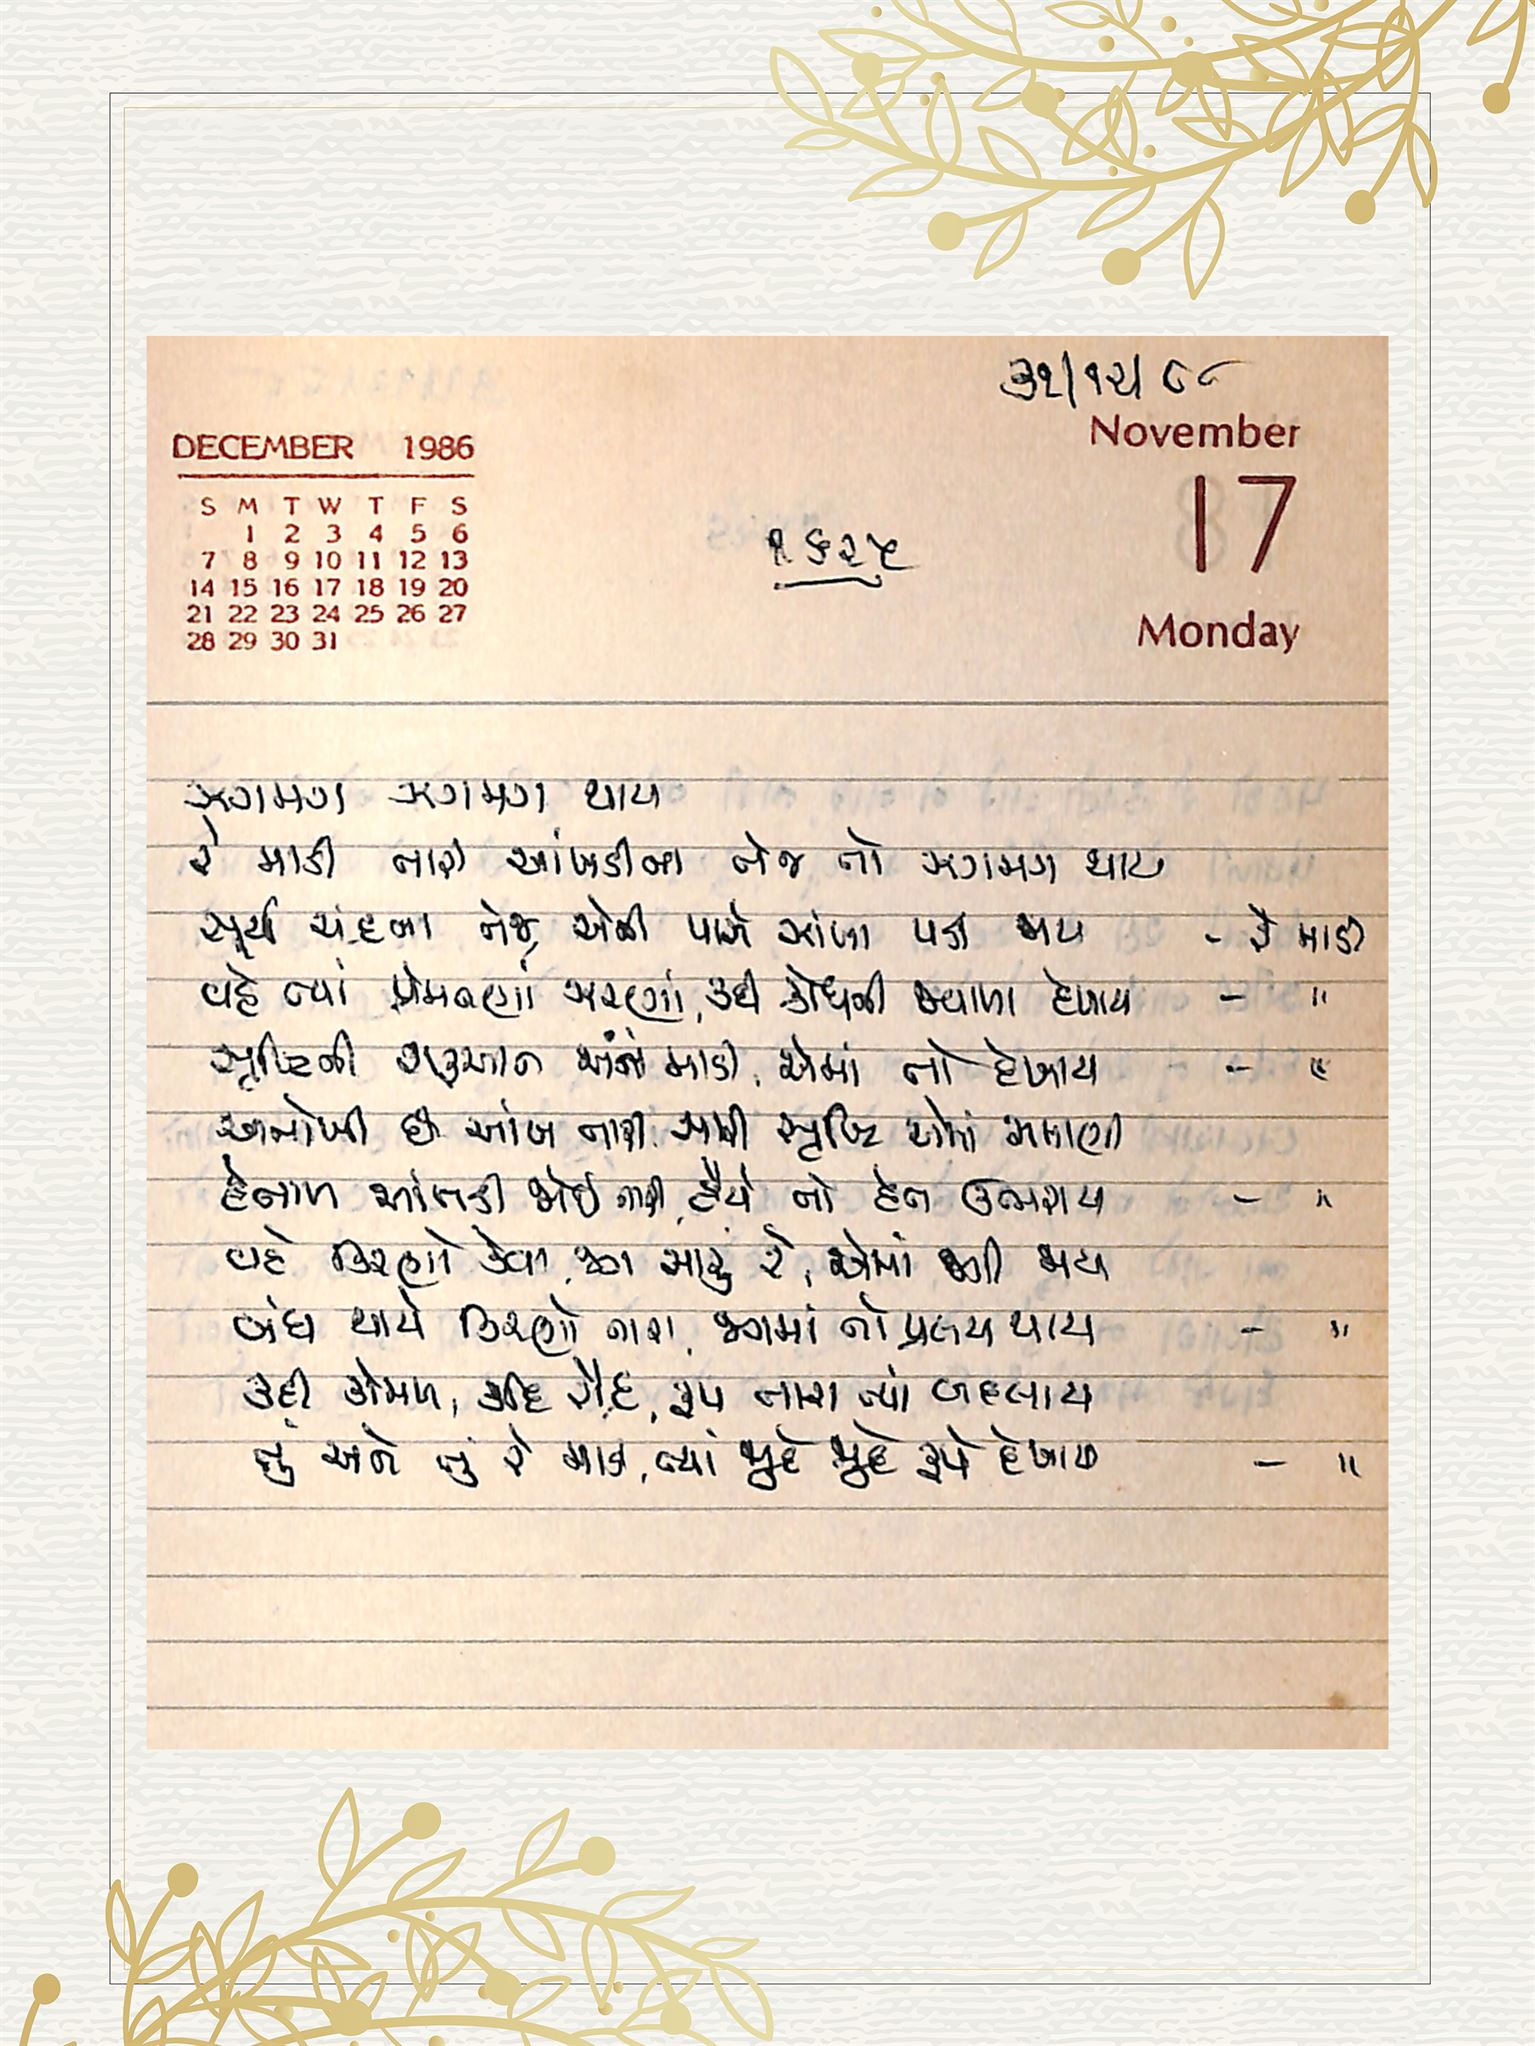 ૩૧/૧૨/૮૮
DECEMBER 1986
November
17
Monday
S M T W T F S
1 2 3 4 5 6
7 8 9 10 11 12 13
14 15 16 17 18 19 20
21 22 23 24 25 26 27
28 29 30 31
૧૬૨૫
ઝગમગ ઝગમગ થાય
રે માડી તારી આંખડીના તેજ તો ઝગમગ થાય
સૂર્ય ચંદ્રના તેજ, એની પાસે ઝાંખા પડી જાય - રે માડી
વહે ત્યાં પ્રેમતણાં ઝરણાં, કદી ક્રોધની જ્વાળા દેખાય - "
સૃષ્ટિની શરૂઆત અંત માડી, એમાં તો દેખાય - "
અનોખી છે આંખ તારી, સારી સૃષ્ટિ એમાં સમાણી
હેતાળ આંખડી જોઈ તારી, હૈયે તો હેત ઉભરાય - "
વહે કિરણો કેવા, જગ સારું રે, એમાં જાગી જાય
બંધ થાયે કિરણો તારા, જગમાં તો પ્રલય થાય - "
કદી કોમળ, કદિ રૌદ્ર, રૂપ તારા ત્યાં બદલાય
તું અને તું રે માડી, ત્યાં જુદે જુદે રૂપે દેખાય - "